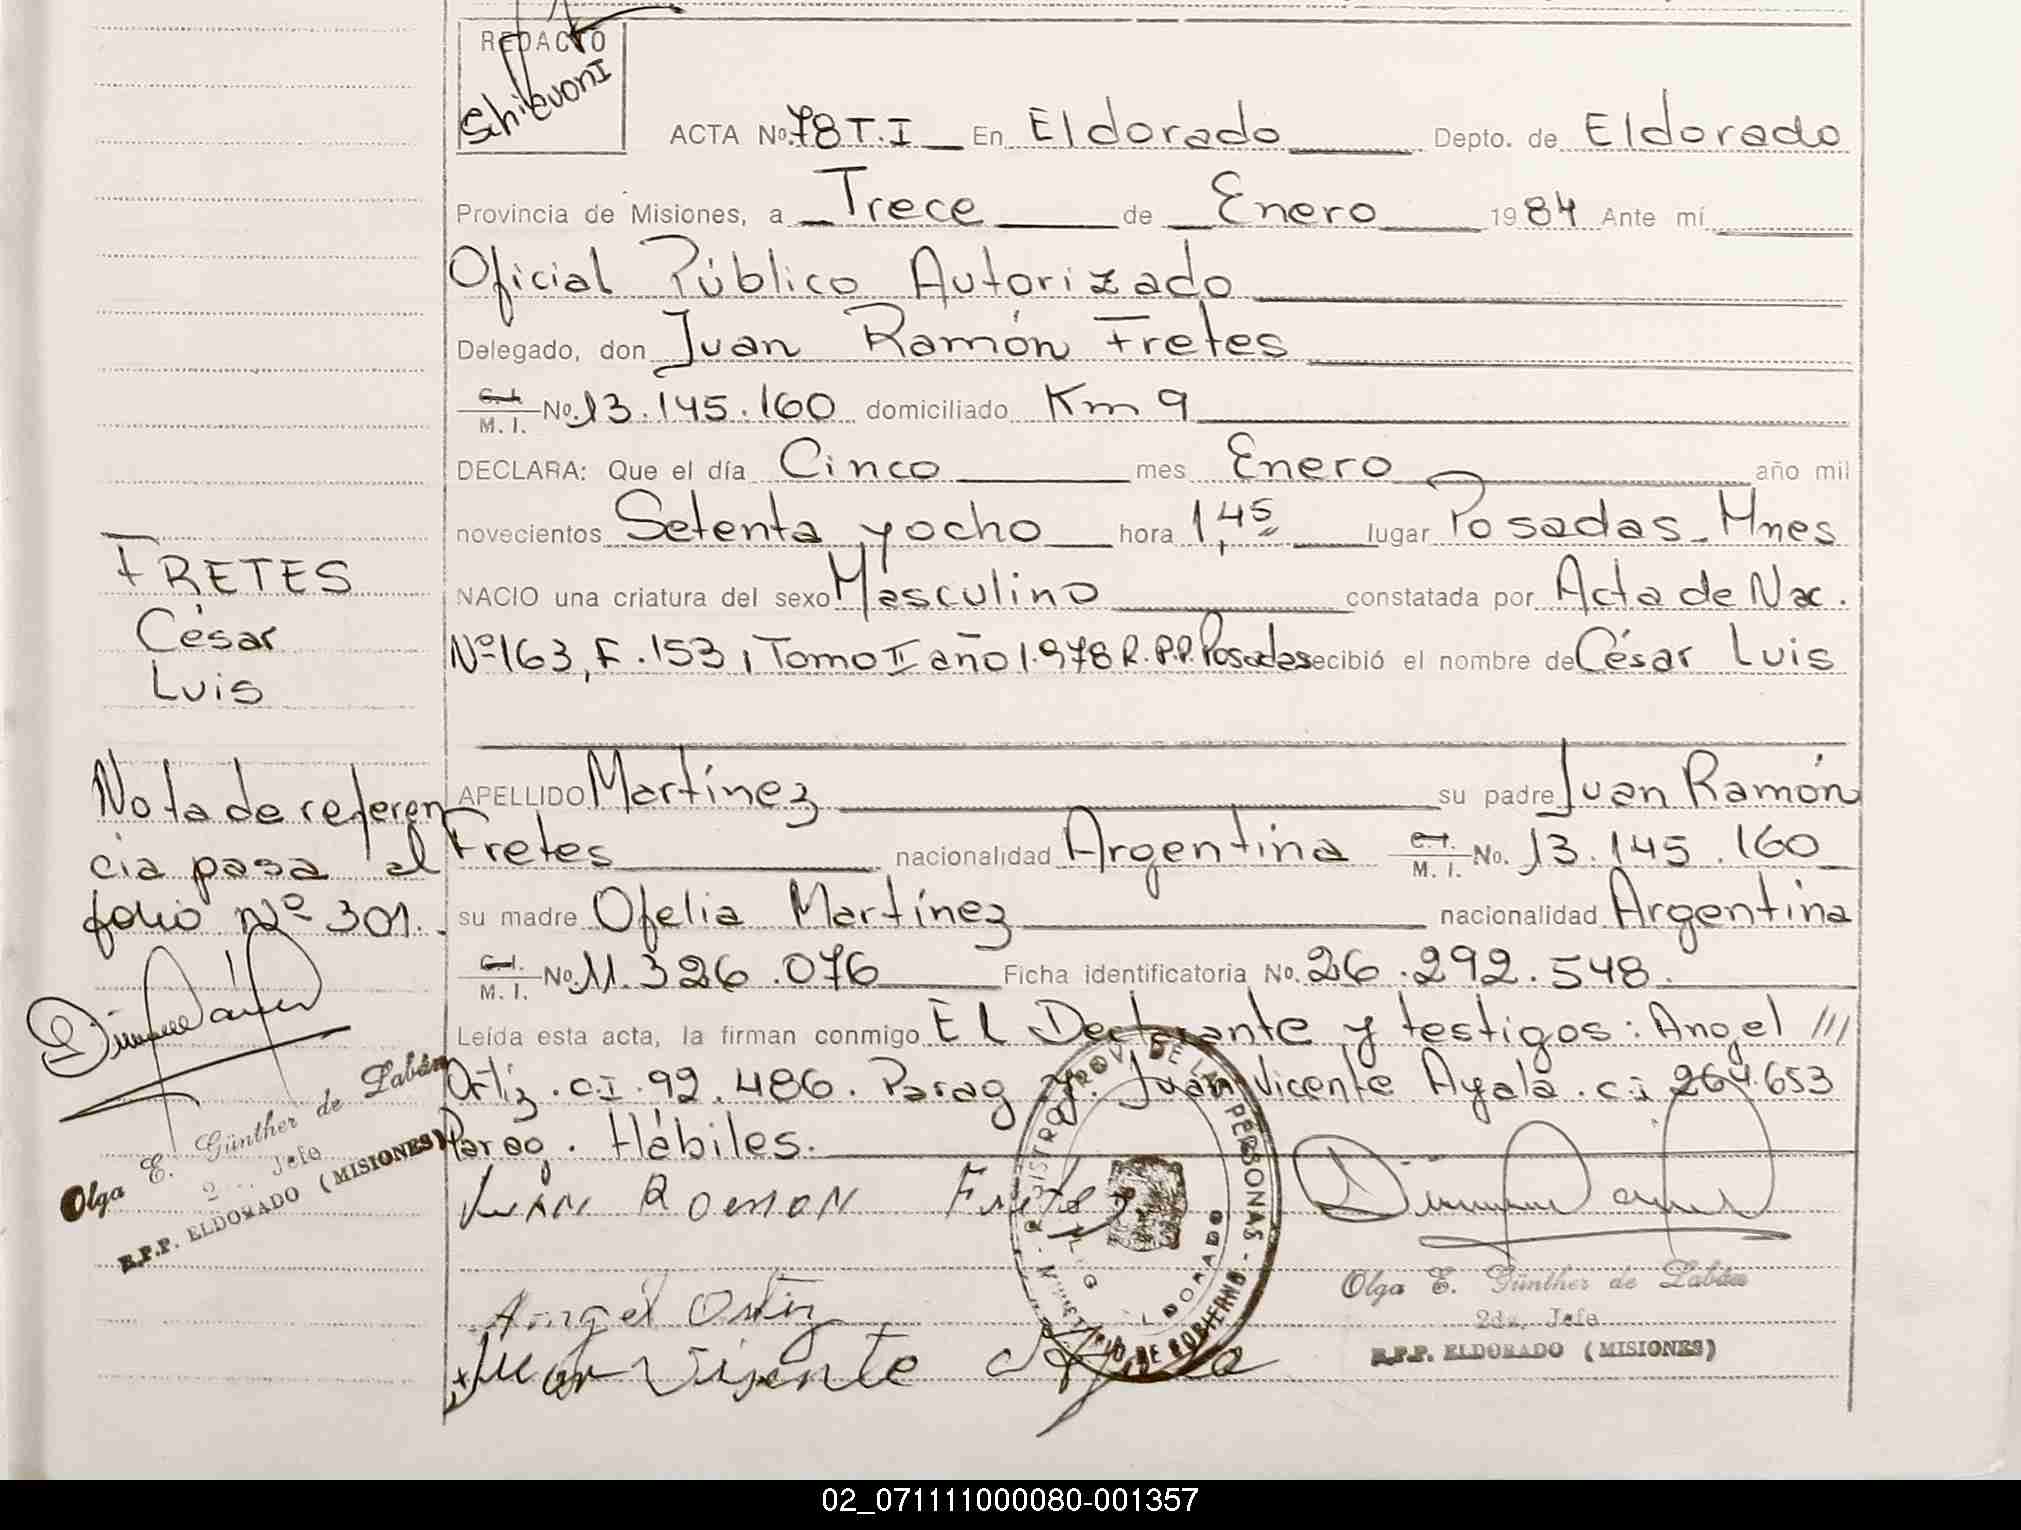 REDACTO
Schiavoni
ACTA Nº 78 T.I En Eldorado Depto. de Eldorado
Provincia de Misiones, a Trece de Enero 1984 Ante mí
Oficial Público Autorizado
Delegado, don Juan Ramón Fretes
C.I. M.I. Nº. 13.145.160 domiciliado Km 9
DECLARA: Que el día Cinco mes Enero año mil
novecientos Setenta y ocho hora 1,45 lugar Posadas - Mnes
NACIO una criatura del sexo Masculino constatada por Acta de Nac.
Nº 163, F. 153, Tomo II año 1.978 R.P.P. Posadas recibió el nombre de César Luis
APELLIDO Martínez su padre Juan Ramón
Fretes nacionalidad Argentina C.I. M.I. No. 13.145.160
su madre Ofelia Martínez nacionalidad Argentina
C.I. M.I. No. 11.326.076 Ficha identificatoria No. 26.292.548.
Leída esta acta, la firman conmigo El Declarante y testigos: Angel ///
Ortiz. c.I. 92.486. Parag y. Juan Vicente Ayala. c.i 264.653
Parag. Hábiles.
FRETES
César
Luis
Nota de referen
cia pasa al
folio Nº 301.
Olga E. Günther de Labán
Jefe
R.P.P. ELDORADO (MISIONES)
Juan Ramon Fretes
Angel Ortiz
Juan Visente Ayala
DE LAS PERSONAS - MINISTERIO DE GOBIERNO
ELDORADO
Olga E. Günther de Labán
2da. Jefe
R.P.P. ELDORADO (MISIONES)
02_071111000080-001357